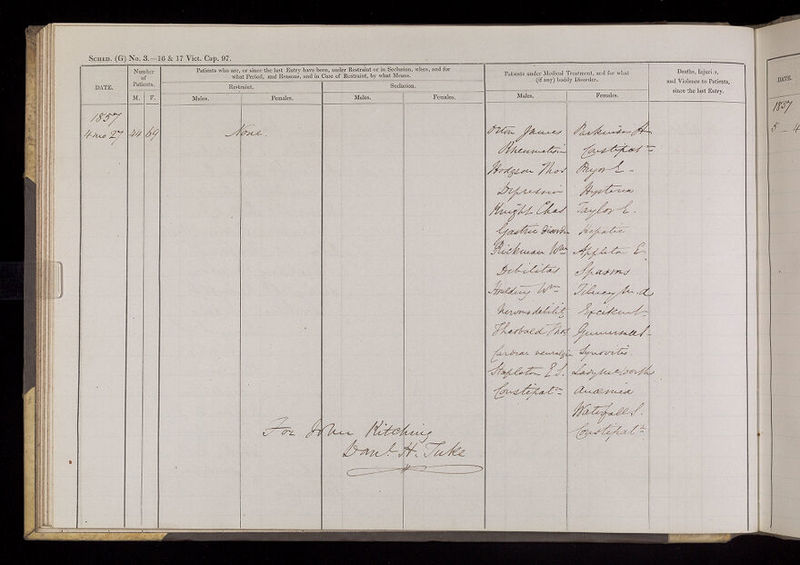 SCHED. (G) No. 3.—16 & 17 Vict. Cap. 97.
DATE.
Number of Patients.
M. F.
Patients who are, or since the last Entry have been, under Restraint or in Seclusion, when, and for
what Period, and Reasons, and in Case of Restraint, by what Means.
Restraint.
Seclusion.
Males.
Females.
Males.
Females.
Patients under Medical Treatment, and for what
(if any) bodily Disorder.
Males.
Females.
Deaths, Injuries,
and Violence to Patients,
since the last Entry.
1857
4 mo 27
44 69
None
Orton James
Rheumatism
Hodgson Thos
Depression
Knight Chas
Gastric
Rickman Wm
Debilitas
Wm
Nervous debility
Theobald Thos
neuralgia
Stapleton E S.
Constipatn
Parkinson
Constipatn
Pryor E
Hysteria
Taylor E.
Hepatic
Appleton E
Spasms
Excitemt
Synovitis
Anaemia
Waterfall S.
Constipatn
For John Kitching
Danl H. Tuke
DATE.
1857
5 4